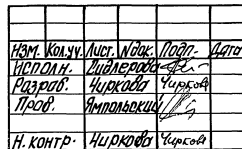 Изм. Кол.уч. Лист. № док. Подп. Дата
Исполн. Гидлерова
Разраб. Чиркова Чиркова
Пров. Ямпольский
Н.контр. Чиркова Чиркова